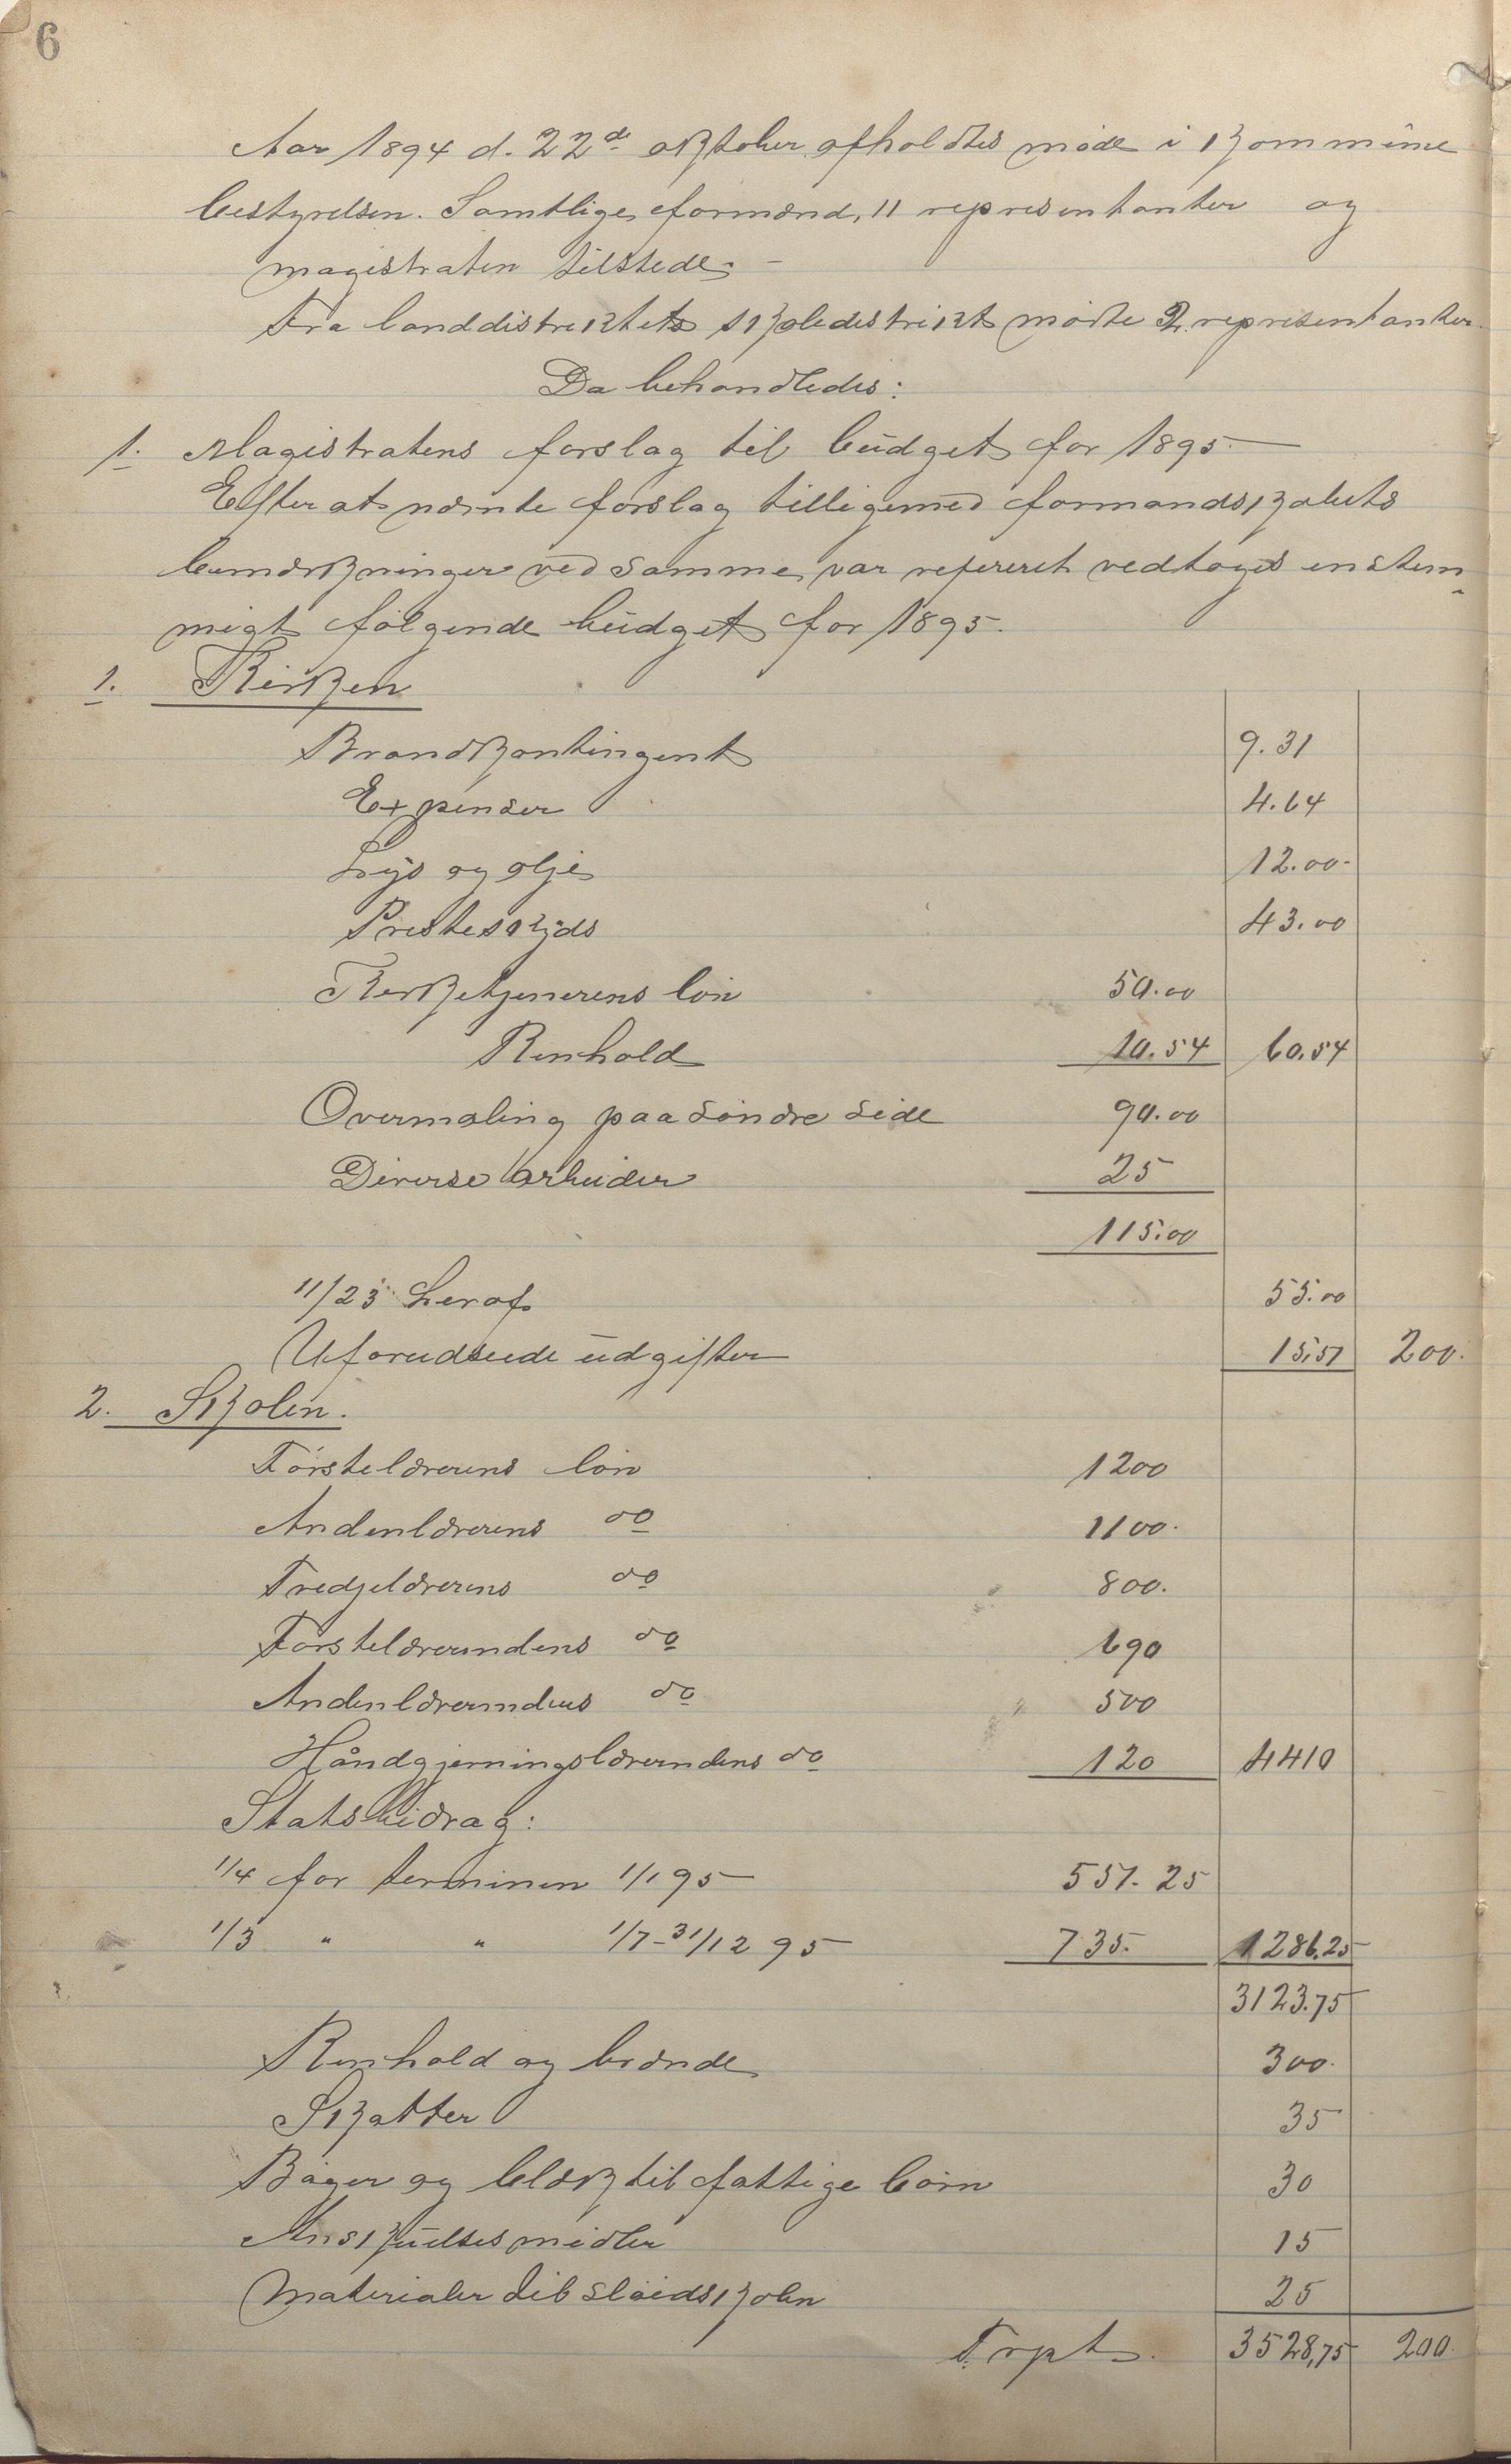 6
Aar 1894 d. 22de oktober afholdtes møde i kommune
bestyrelsen. Samtlige formænd, 11 representanter og
magistraten tilstede. –
Fra landdistriktets skoledistrikt mødte 2 representanter.
Da behandledes:
1. Magistratens forslag til budget for 1895.
Efter at nævnte forslag tilligemed formandskabets
bemærkninger ved samme var refereret vedtoges enstem-
migt følgende budget for 1895.
1. Kirken
Brandkontingent 9.31
Expenser 4.64
Lys og olje 12.00.
Presteskyds 43.00
Kirketjenerens løn 50.00
Renhold 10.54 60.54
Overmaling paa søndre side 90.00
Diverse arbeider 25
115.00
11/23 heraf 55.00
Uforudseede udgifter 15,51 200.
2. Skolen.
Førstelærerens løn 1200
Andenlærerens do 1100.
Tredjelærerens do 800.
Førstelærerindens do 690
Andenlærerindens do 500
Håndgjerningslærerindens do 120 4410
Statsbidrag:
1/4 for terminen 1/1 95 551.25
1/3 " " 1/7-31/12 95 735. 1286.25
3123.75
Renhold og brænde 300.
Skatter 35
Bøger og blæk til fattige børn 30
Anskuelsesmidler 15
Materialer til sløidskolen 25
Trpt. 3528,75 200.